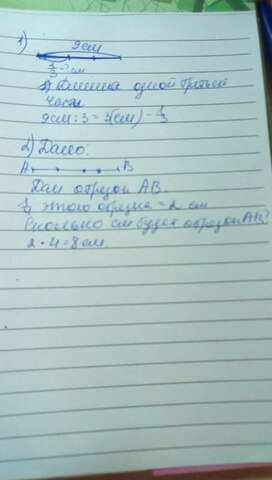 1)
9см
1/3 - ? см
1) Длинна одной третьей
части
9см : 3 = 3(см) - 1/3
2) Дано:
А В
Дан отрезок АВ.
1/4 этого отрезка = 2 см
Сколько см будет отрезок АВ?
2 · 4 = 8 см.